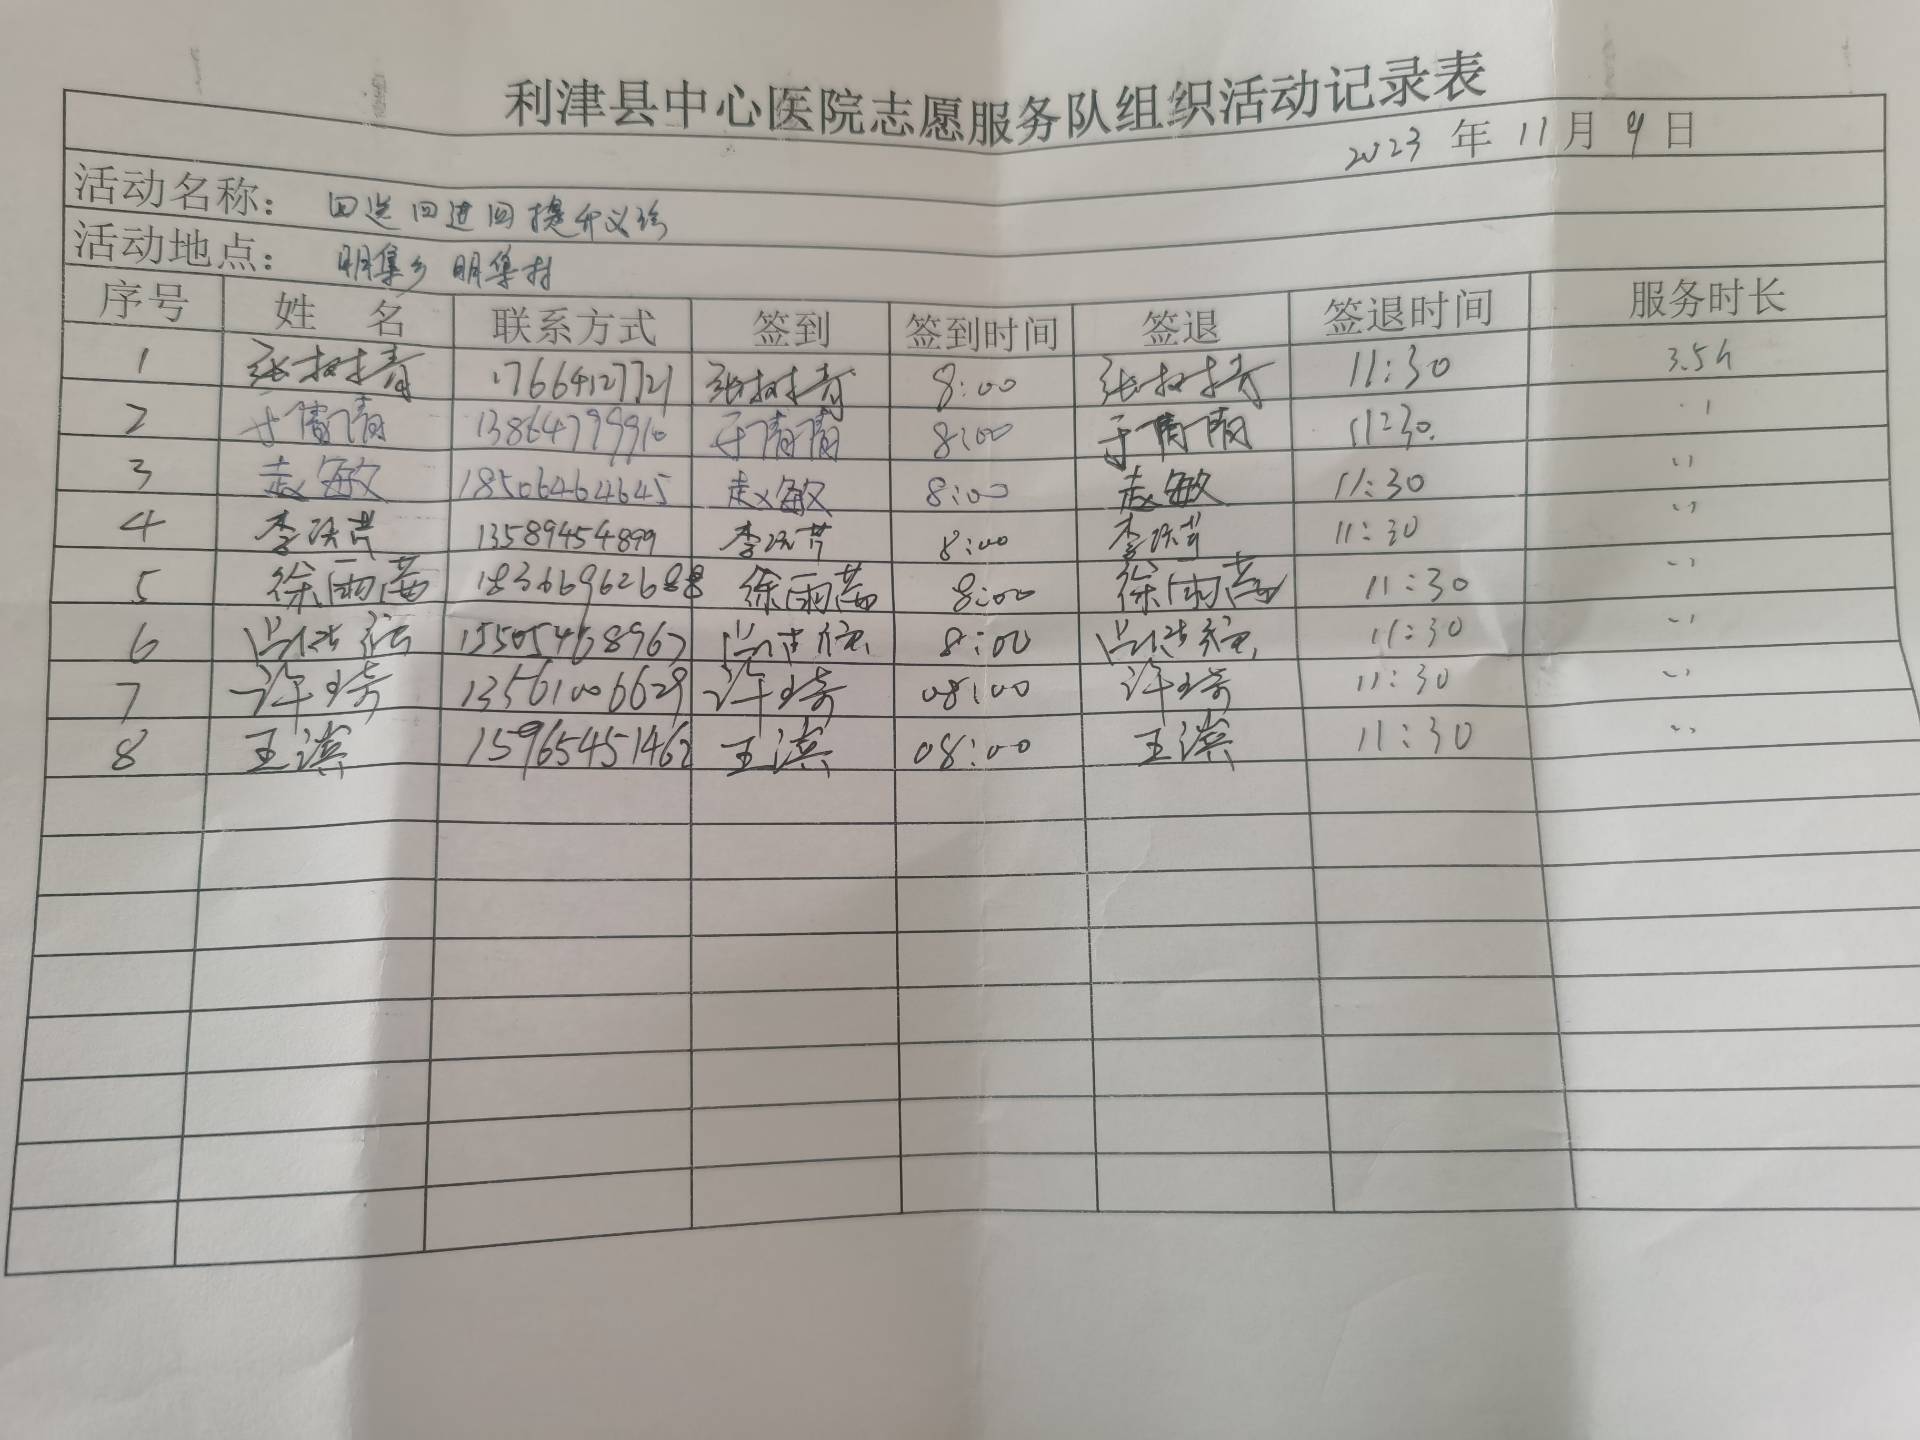 利津县中心医院志愿服务队组织活动记录表
2023 年 11 月 9 日
活动名称: 四送四进四提升义诊
活动地点: 明集乡 明集村
序号 姓 名 联系方式 签到 签到时间 签退 签退时间 服务时长
1 张树青 17664127721 张树青 8:00 张树青 11:30 3.5h
2 于倩倩 13864799910 于倩倩 8:00 于倩倩 11:30
3 赵敏 18506464645 赵敏 8:00 赵敏 11:30 〃
4 李 13589454899 李 8:00 李 11:30 〃
5 徐雨茜 徐雨茜 8:00 徐雨茜 11:30 〃
6 15505468967 8:00 11:30 〃
7 许琦 13561006629 许琦 08:00 许琦 11:30 〃
8 王滨 15965451462 王滨 08:00 王滨 11:30 〃